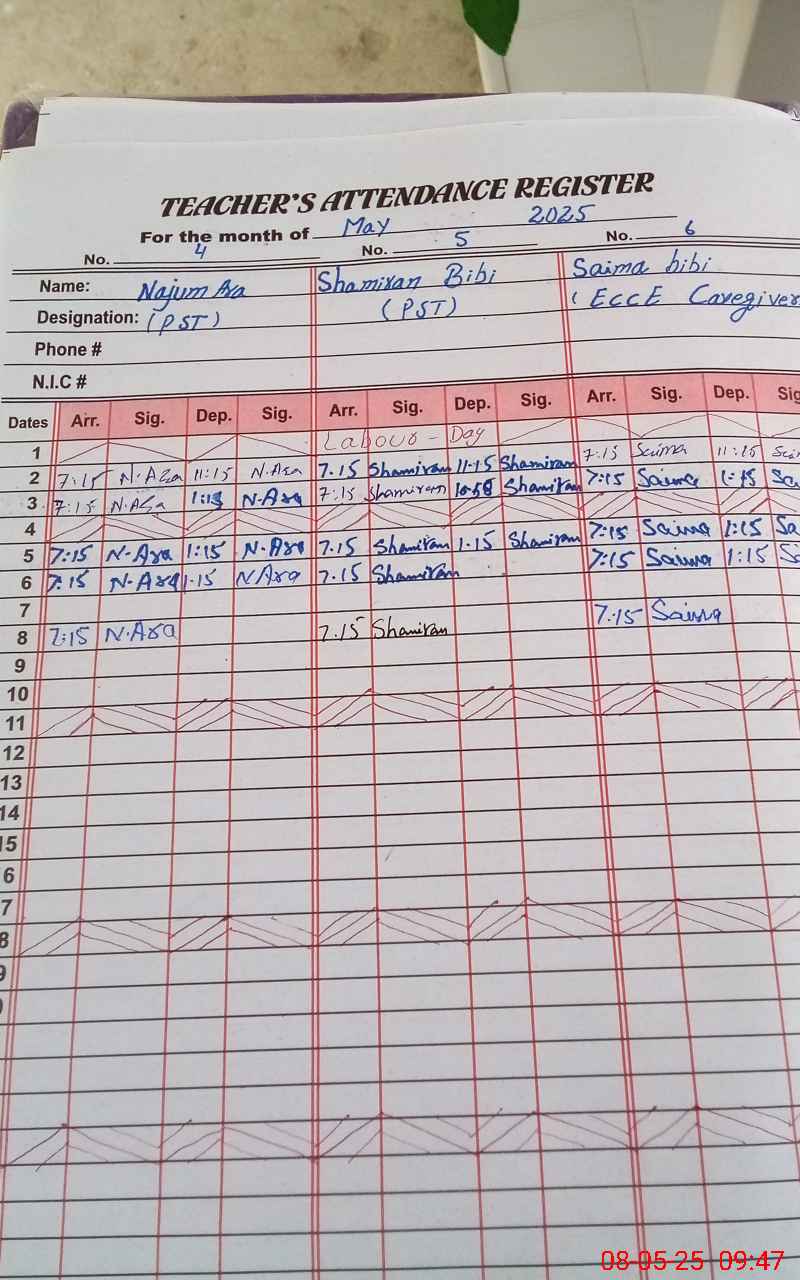 TEACHER'S ATTENDANCE REGISTER
For the month of May 2025
No. 4 No. 5 No. 6
Name: Najum Ara Shamiran Bibi Saima bibi
Designation: (PST) (PST) (ECCE Caregiver
Phone #
N.I.C #
Dates Arr. Sig. Dep. Sig. Arr. Sig. Dep. Sig. Arr. Sig. Dep. Sig
1 Labour - Day
2 7:15 N.Ara 11:15 N.Ara 7.15 Shamiran 11.15 Shamiran 7:15 Saima 11:15 Sai
3 7:15 N.Ara 1:15 N.Ara 7:15 Shamiran 10:58 Shamiran 7:15 Saima 1:15 Sa
4
5 7:15 N.Ara 1:15 N.Ara 7.15 Shamiran 1.15 Shamiran 7:15 Saima 1:15 Sa
6 7:15 N.Ara 1.15 N Ara 7.15 Shamiran 7:15 Saima 1:15 S
7
8 7:15 N.Ara 7.15 Shamiran 7.15 Saima
9
10
11
12
13
14
15
6
7
8
9
08-05-25 09:47